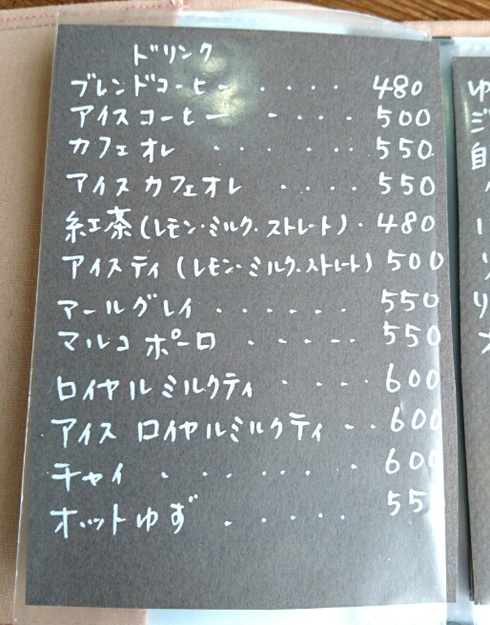 ドリンク
ブレンドコーヒー ・・・・ 480
アイスコーヒー ・・・・ 500
カフェオレ ・・・・・ 550
アイスカフェオレ ・・・・ 550
紅茶(レモン・ミルク・ストレート)・480
アイスティ(レモン・ミルク・ストレート)500
アールグレイ ・・・・・・ 550
マルコポーロ ・・・・・ 550
ロイヤルミルクティ ・・・・ 600
アイス ロイヤルミルクティ ・・・ 600
チャイ ・・・・・・・ 600
オットゆず ・・・・・ 55
ゆ
ジ
自
り